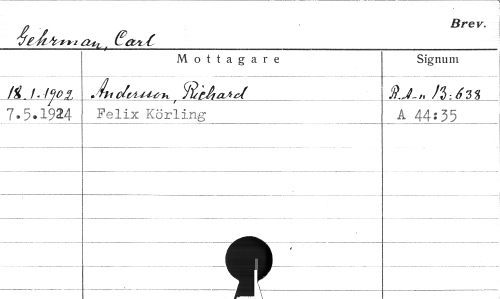 Brev.
Gehrman, Carl
Mottagare Signum
18.1.1902 Andersson, Richard R.A-n 13:638
7.5.1924 Felix Körling A 44:35